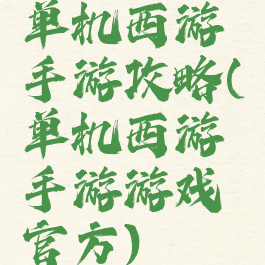 单机西游
手游攻略(
单机西游
手游游戏
官方)